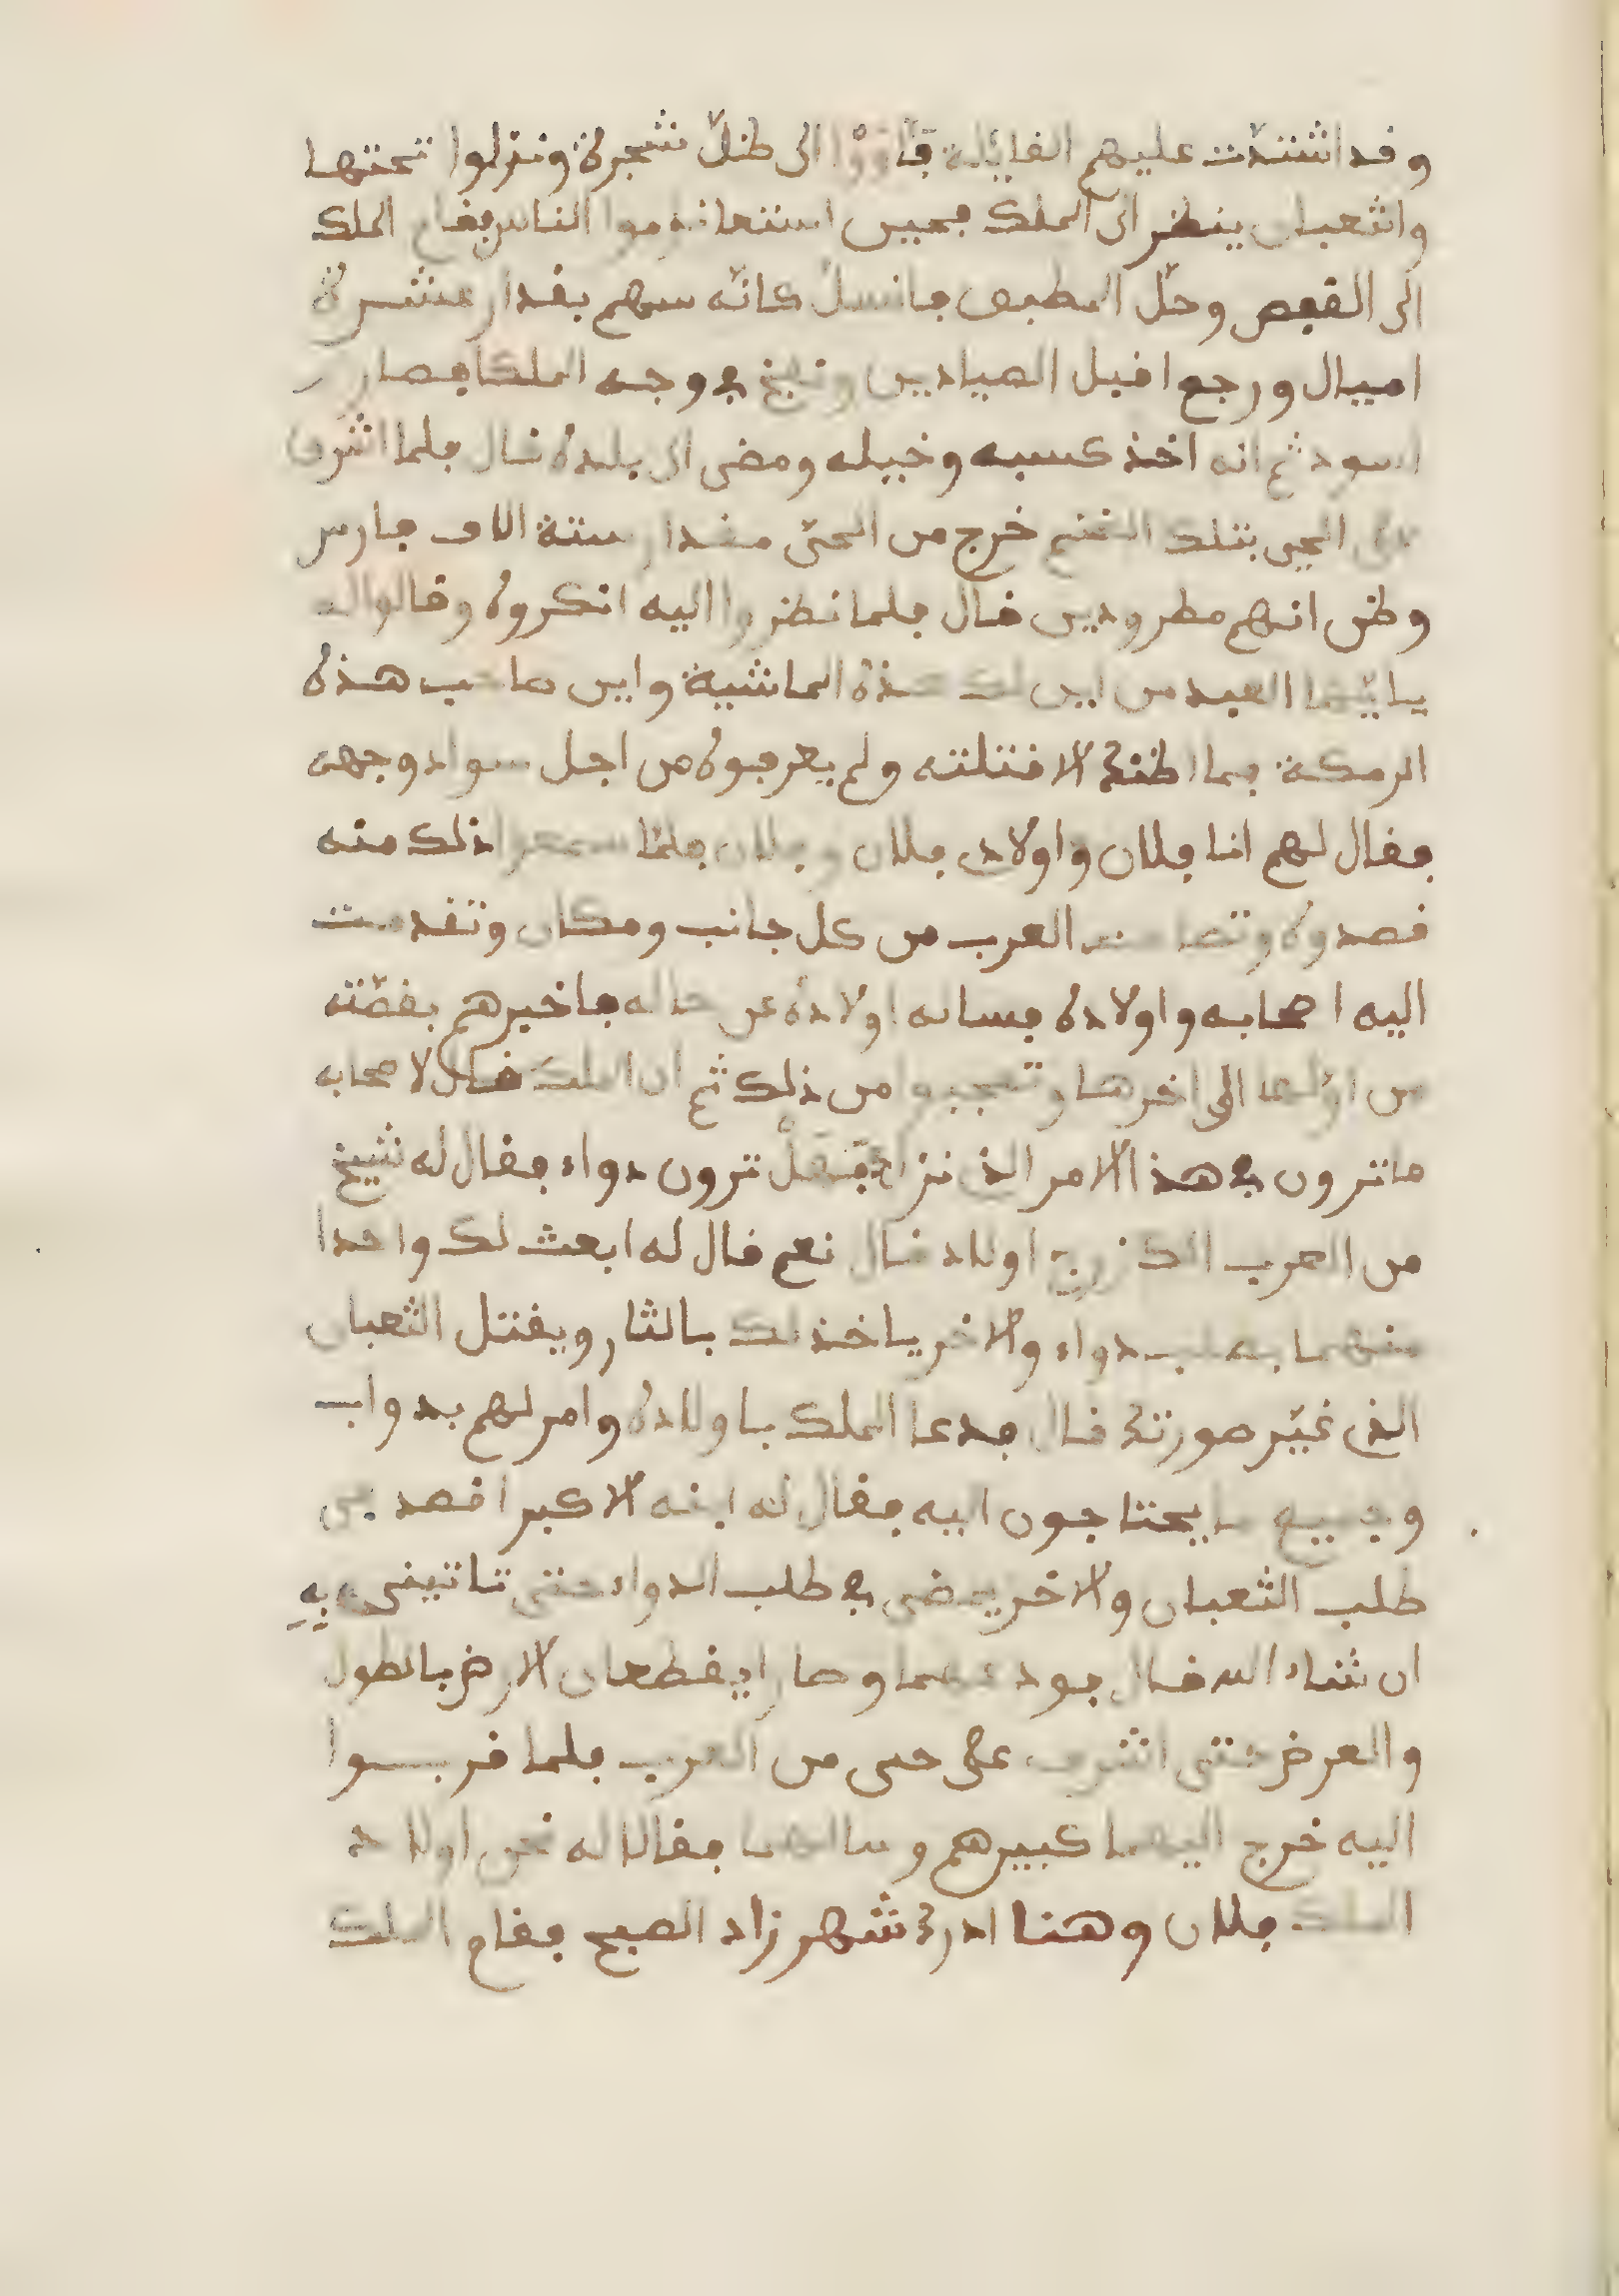 وقد اشتدّت عليهم القايلة فَأَوَوْا الى ظلّ شجرة ونزلوا تحتها
والثعبان ينظر الى الملك فحين استعانه موا الناس فقام الملك
الى القفص وحلّ المطبق فانسلّ كانّه سهم بقدار عشرة
اميال ورجع اقبل الصيادين ونفخ في وجه الملك فصار
اسود ثم انه اخذ كسبه وخيله ومضى الى بلده قال فلما اشرف
على الحي بتلك الغنم خرج من الحيّ مقدار ستة الاف فارس
وظن انهم مطرودين قال فلما نظروا اليه انكروه وقالوا له
يايّها العبد من اين لك هذه الماشية واين صاحب هذه
الرمكة فما اظنك الا قتلته ولم يعرفوه من اجل سواد وجهه
فقال لهم انا فلان واولادى فلان وفلان فلمّا سمعوا ذلك منه
قصدوه وتصا العرب من كل جانب ومكان وتقدمت
اليه اصحابه واولاده فساله اولاده عن حاله فاخبرهم بقصّته
من اوّلها الى اخرها وتعجبوا من ذلك ثم ان الملك قال لاصحابه
ما ترون في هذا الامر الذى نزل بى فَهَلْ ترون دواء فقال له شيخ
من العرب الك اولاد قال نعم قال له ابعث لك واحدا
منهما يطلب دواء والاخر ياخذ لك بالثار ويقتل الثعبان
الذى غيّر صورتك قال فدعا الملك باولاده وامر لهم بدواب
وجميع ما يحتاجون اليه فقال له ابنه الاكبر اقصد فى
طلب الثعبان والاخر يمضى في طلب الدواء حتى تاتينى بِهِ
ان شاء الله قال فودعهما وصارا يقطعان الارض بالطول
والعرض حتى اشرف على حى من العرب فلما قربوا
اليه خرج اليهما كبيرهم وسالهما فقالا له نحن اولاد
الملك فلان وهنا ادرك شهرزاد الصبح فقام الملك